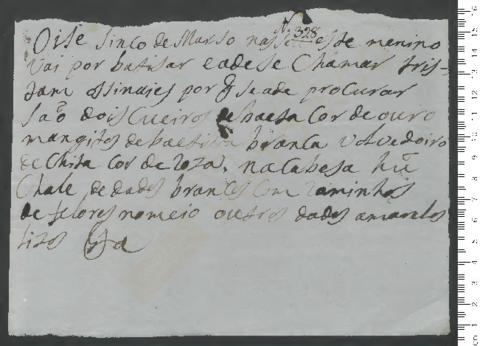 Nº 328
Oije sinco de Marso nasceu este menino
vai por batisar e ade se Chamar tris-
tam os sinaies por q̃ se ade procurar
saõ dois Cueiros de baeta Cor de ouro
mangitos de baetilha branca volvedoiro
de Chita Cor de roza, na Cabesa hũ
Chale de dados brancos Com raminhos
de felores no meio outros dados amarelos
lizos